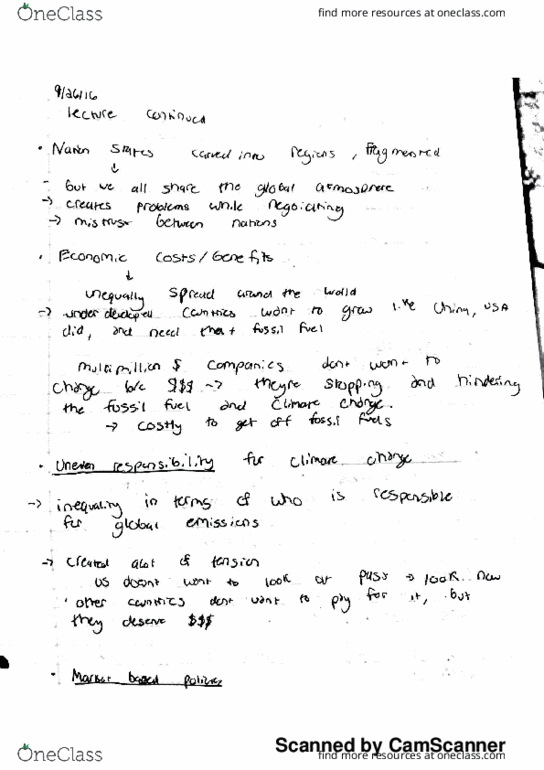 OneClass
find more resources at oneclass.com
9/26/16
lecture continued
• Nation states carved into regions, fragmented
↓
- but we all share the global atmosphere
→ creates problems while negoiciating
→ mistrust between nations
• Economic costs/benefits
↓
unequally spread around the world
→ under developed countries want to grow like China, USA
did, and need that fossil fuel
multimillion $ companies dont want to
change b/c $$$ → theyre stopping and hindering
the fossil fuel and climate change.
→ costly to get off fossil fuels
• Uneven responsibility for climate change
→ inequality in terms of who is responsible
for global emissions
→ created alot of tension
US doesnt want to look at past → look now
• other countries dont want to pay for it, but
they deserve $$$
• Market based policies
Scanned by CamScanner
OneClass
find more resources at oneclass.com